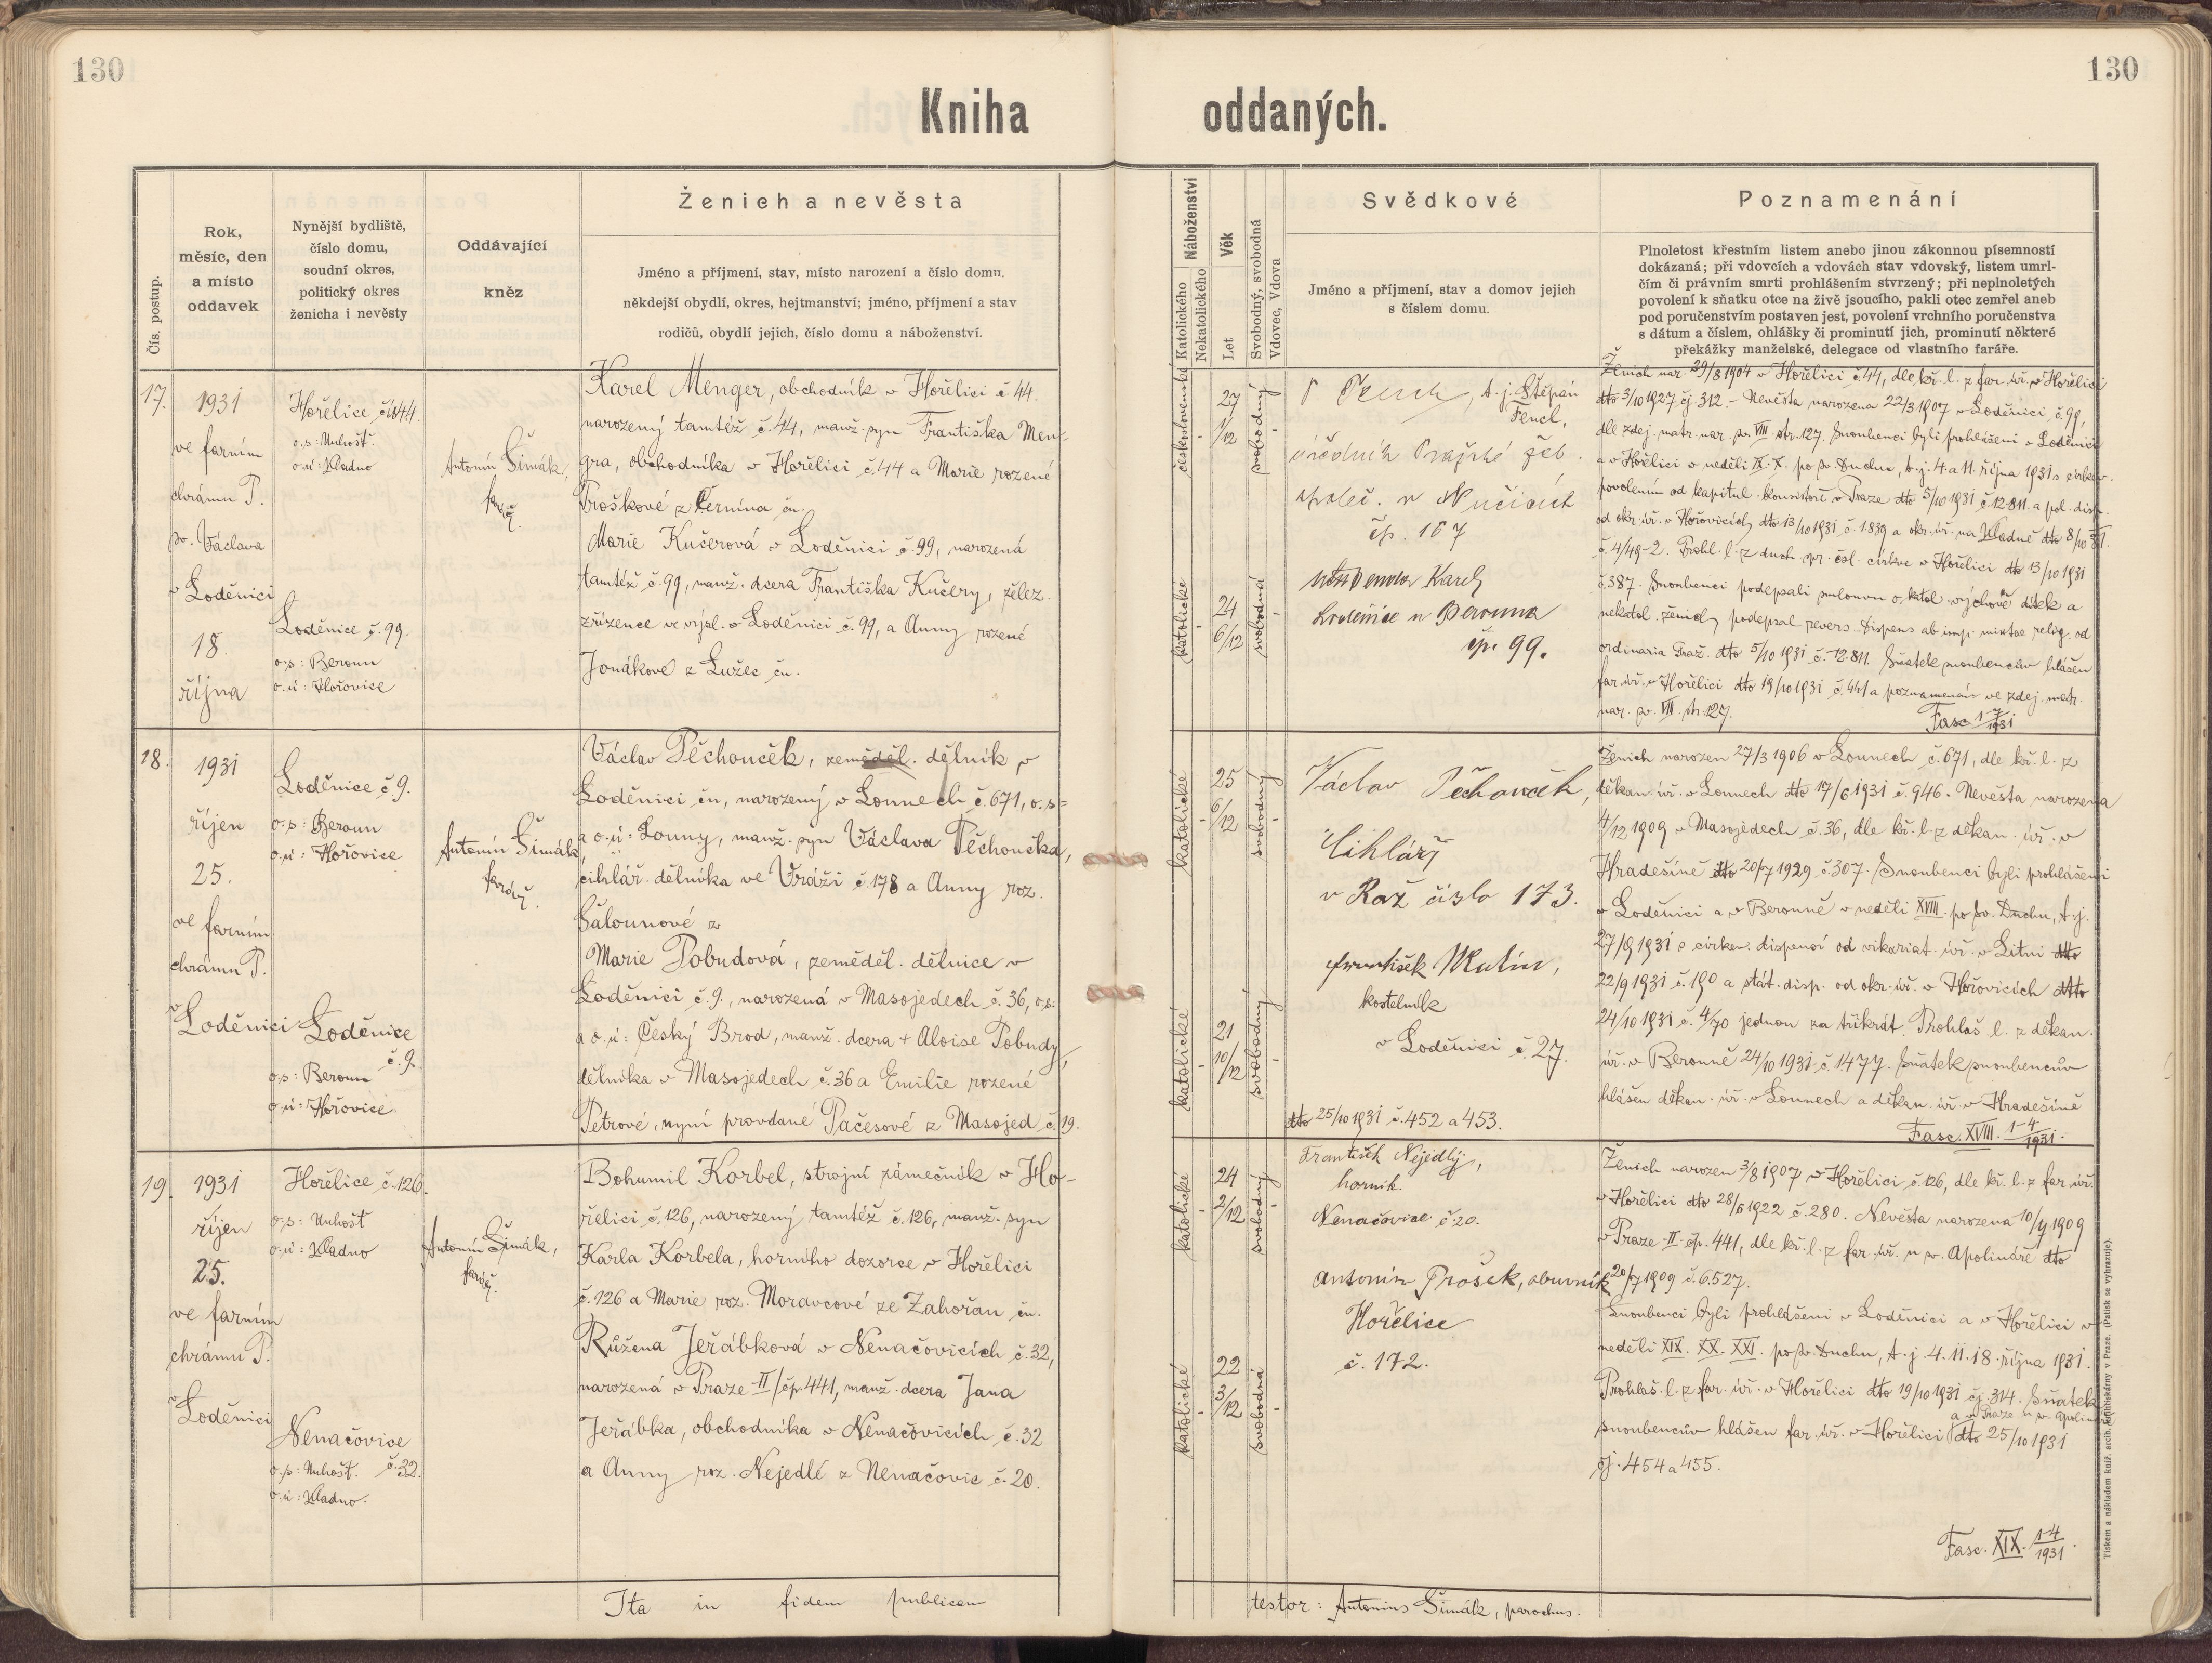 130
130
Kniha oddaných.
Čís. postup.
Rok,
měsíc, den
a místo
oddavek
Nynější bydliště,
číslo domu,
soudní okres,
politický okres
ženicha i nevěsty
Oddávající
kněz
Ženich a nevěsta
Jméno a příjmení, stav, místo narození a číslo domu.
někdejší obydlí, okres, hejtmanství; jméno, příjmení a stav
rodičů, obydlí jejich, číslo domu a náboženství.
Náboženství
Katolického
Nekatolického
Věk
Let
Svobodný, svobodná
Vdovec, Vdova
Svědkové
Jméno a příjmení, stav a domov jejich
s číslem domu.
Poznamenání
Plnoletost křestním listem anebo jinou zákonnou písemností
dokázaná; při vdovcích a vdovách stav vdovský, listem umrl-
čím či právním smrti prohlášením stvrzený; při neplnoletých
povolení k sňatku otce na živě jsoucího, pakli otec zemřel aneb
pod poručenstvím postaven jest, povolení vrchního poručenstva
s dátum a číslem, ohlášky či prominutí jich, prominutí některé
překážky manželské, delegace od vlastního faráře.
17.
1931
ve farním
chrámu P.
sv. Václava
v Loděnici
18.
října
Hořelice čís 44.
o.s: Unhošť
o.ú: Kladno
Loděnice č. 99.
o.s: Beroun
o.ú: Hořovice
Antonín Šimák,
farář.
Karel Menger, obchodník v Hořelici č 44.
narozený tamtéž č. 44, manž. syn Františka Men-
gra, obchodníka v Hořelici č.44 a Marie rozené
Proškové z Černína čn.
Marie Kučerová v Loděnici č. 99, narozená
tamtéž č. 99, manž. dcera Františka Kučery, želez.
zřízence ve výsl. v Loděnici č. 99, a Anny rozené
Jonákové z Lužec čn.
československé
27
1/12
svobodný
katolické
24
6/12
svobodná
t. j. Štěpán
Fencl,
úředník Pražské žel.
společ. v Nučicích
čp. 167
Karel
Loděnice u Berouna
čp. 99.
Ženich nar. 29/8 1904 v Hořelici č.44, dle kř. l. z far. úř. v Hořelici
dto 3/10 1927 čj. 312. - Nevěsta narozena 22/3 1907 v Loděnici č. 99,
dle zdej. matr. nar. sv. VIII. str. 127. Snoubenci byli prohlášeni v Loděnici
a v Hořelici v neděli IX. X. po sv. Duchu, t. j. 4. a 11. října 1931 s církev.
povolením od kapitul. konsistoře v Praze dto 5/10 1931 č. 12.811. a pol. disp.
od okr. úř. v Hořovicích dto 13/10 1931 č. 1.839 a okr. úř. na Kladně dto 8/10 31.
č. 4/49-2. Prohl. l. z duch. spr. čsl. církve v Hořelici dto 13/10 1931
č. 387. Snoubenci podepsali smlouvu o katol. výchově dítek a
nekatol. ženich podepsal revers. Dispens ab imp. mixtae relig. od
ordinaria Praž. dto 5/10 1931 č. 12.811. Sňatek snoubenců hlášen
far. úř. v Hořelici dto 19/10 1931 č. 441 a poznamenán ve zdej. matr.
nar. sv. VIII. str. 127.
Fasc 1-7/1931
18.
1931
říjen
25.
ve farním
chrámu P.
v
Loděnici
Loděnice č 9.
o.s: Beroun
o.ú: Hořovice
Loděnice
č. 9.
o.s: Beroun
o.ú: Hořovice
Antonín Šimák,
farář.
Václav Pěchouček, zeměděl. dělník v
Loděnici čn, narozený v Lounech č. 671, o. s=
a o. ú: Louny, manž. syn Václava Pěchoučka,
cihlář. dělníka ve Vráži č. 178 a Anny roz.
Šalounové z
Marie Pobudová, zeměděl. dělnice v
Loděnici č. 9., narozená v Masojedech č. 36, o.s:
a o. ú: Český Brod, manž. dcera + Aloise Pobudy,
dělníka v Masojedech č. 36 a Emilie rozené
Petrové, nyní provdané Pačesové z Masojed č. 19.
katolické
25
6/12
svobodný
katolické
21
10/12
svobodný
Václav Pěchouček,
Cihlář
v Raž číslo 173.
František Mulín,
kostelník
v Loděnici č. 27.
dto 25/10 1931 č. 452 a 453.
Ženich narozen 27/3 1906 v Lounech č. 671, dle kř. l. z
děkan. úř. v Lounech dto 17/6 1931 č. 946. Nevěsta narozena
4/12 1909 v Masojedech č. 36, dle kř. l. z děkan. úř. v
Hradešíně dto 20/7 1929 č. 307. Snoubenci byli prohlášeni
v Loděnici a v Berouně v neděli XVIII. po sv. Duchu, t. j.
27/9 1931 s církev. dispensí od vikariat. úř. v Litni dto
22/9 1931 č. 190 a stát. disp. od okr. úř. v Hořovicích dto
24/10 1931 č. 4/70 jednou za třikrát. Prohláš. l. z děkan.
úř. v Berouně 24/10 1931 č. 1477. Sňatek snoubencův
hlášen děkan. úř. v Lounech a děkan. úř. v Hradešíně
Fasc. XVIII. 1-4/1931.
19.
1931
říjen
25.
ve farním
chrámu P.
v
Loděnici
Hořelice č. 126.
o.s: Unhošť
o.ú: Kladno
Nenačovice
č. 32.
o.s: Unhošť.
o.ú: Kladno.
Antonín Šimák,
farář.
Bohumil Korbel, strojní zámečník v Ho-
řelici č. 126, narozený tamtéž č. 126, manž. syn
Karla Korbela, horního dozorce v Hořelici
č. 126 a Marie roz. Moravcové ze Zahořan čn.
Růžena Jeřábková v Nenačovicích č. 32,
narozená v Praze-II/čp. 441, manž. dcera Jana
Jeřábka, obchodníka v Nenačovicích č. 32
a Anny roz. Nejedlé z Nenačovic č. 20.
katolické
24
2/12
svobodný
katolické
22
3/12
svobodná
František Nejedlý,
horník.
Nenačovice č. 20.
Antonín Prošek, obuvník
Hořelice
č. 172.
Ženich narozen 3/8 1907 v Hořelici č. 126, dle kř. l. z far. úř.
v Hořelici dto 28/6 1922 č. 280. Nevěsta narozena 10/7 1909
v Praze-II-čp. 441, dle kř. l. z far. úř. u sv. Apolináře dto
20/7 1909 č. 6.527.
Snoubenci byli prohlášeni v Loděnici a v Hořelici v
neděli XIX. XX. XXI. po sv. Duchu, t. j. 4. 11. 18. října 1931.
Prohláš. l. z far. úř. v Hořelici dto 19/10 1931 čj. 314. Sňatek
a v Praze u sv. Apolináře
snoubencův hlášen far. úř. v Hořelici dto 25/10 1931
čj. 454 a 455.
Fasc. XIX. 1-4/1931.
Ita in fidem publicam
testor: Antonius Šimák, parochus.
Tiskem a nákladem kníž. arcib. knihtiskárny v Praze. (Patisk se vyhrazuje).